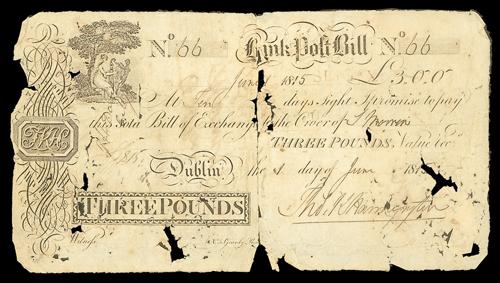 No 66 Bank Post Bill No 66
June 1 1815 £3.0.0
At Ten days sight I promise to pay
this Sola Bill of Exchange to the Order of
THREE POUNDS Value rec
1815
Dublin the 1 day of June 1815
THREE POUNDS
Thos
Witness